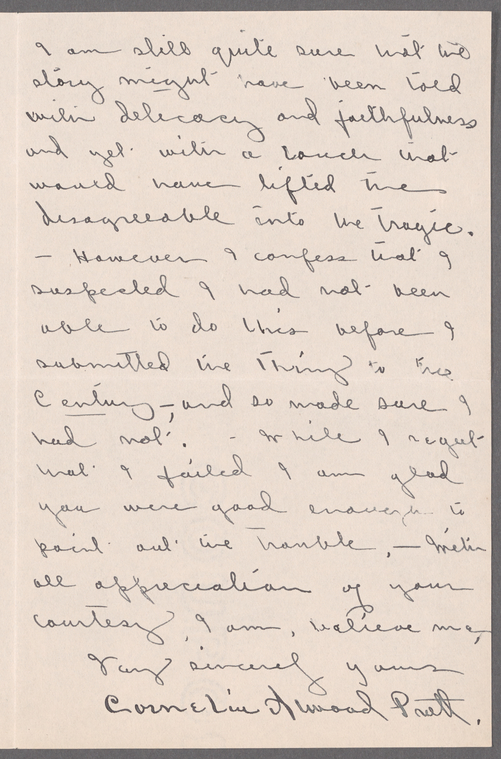 I am still quite sure that the
story might have been told
with delicacy and faithfulness
and yet with a touch that
would have lifted the
disagreeable into the tragic.
— However I confess that I
suspected I had not been
able to do this before I
submitted the thing to the
Century —, and so made sure I
had not. - While I regret
that I failed I am glad
you were good enough to
point out the trouble, — With
all appreciation of your
courtesy, I am, believe me,
Very sincerely yours
Cornelia Atwood Pratt.